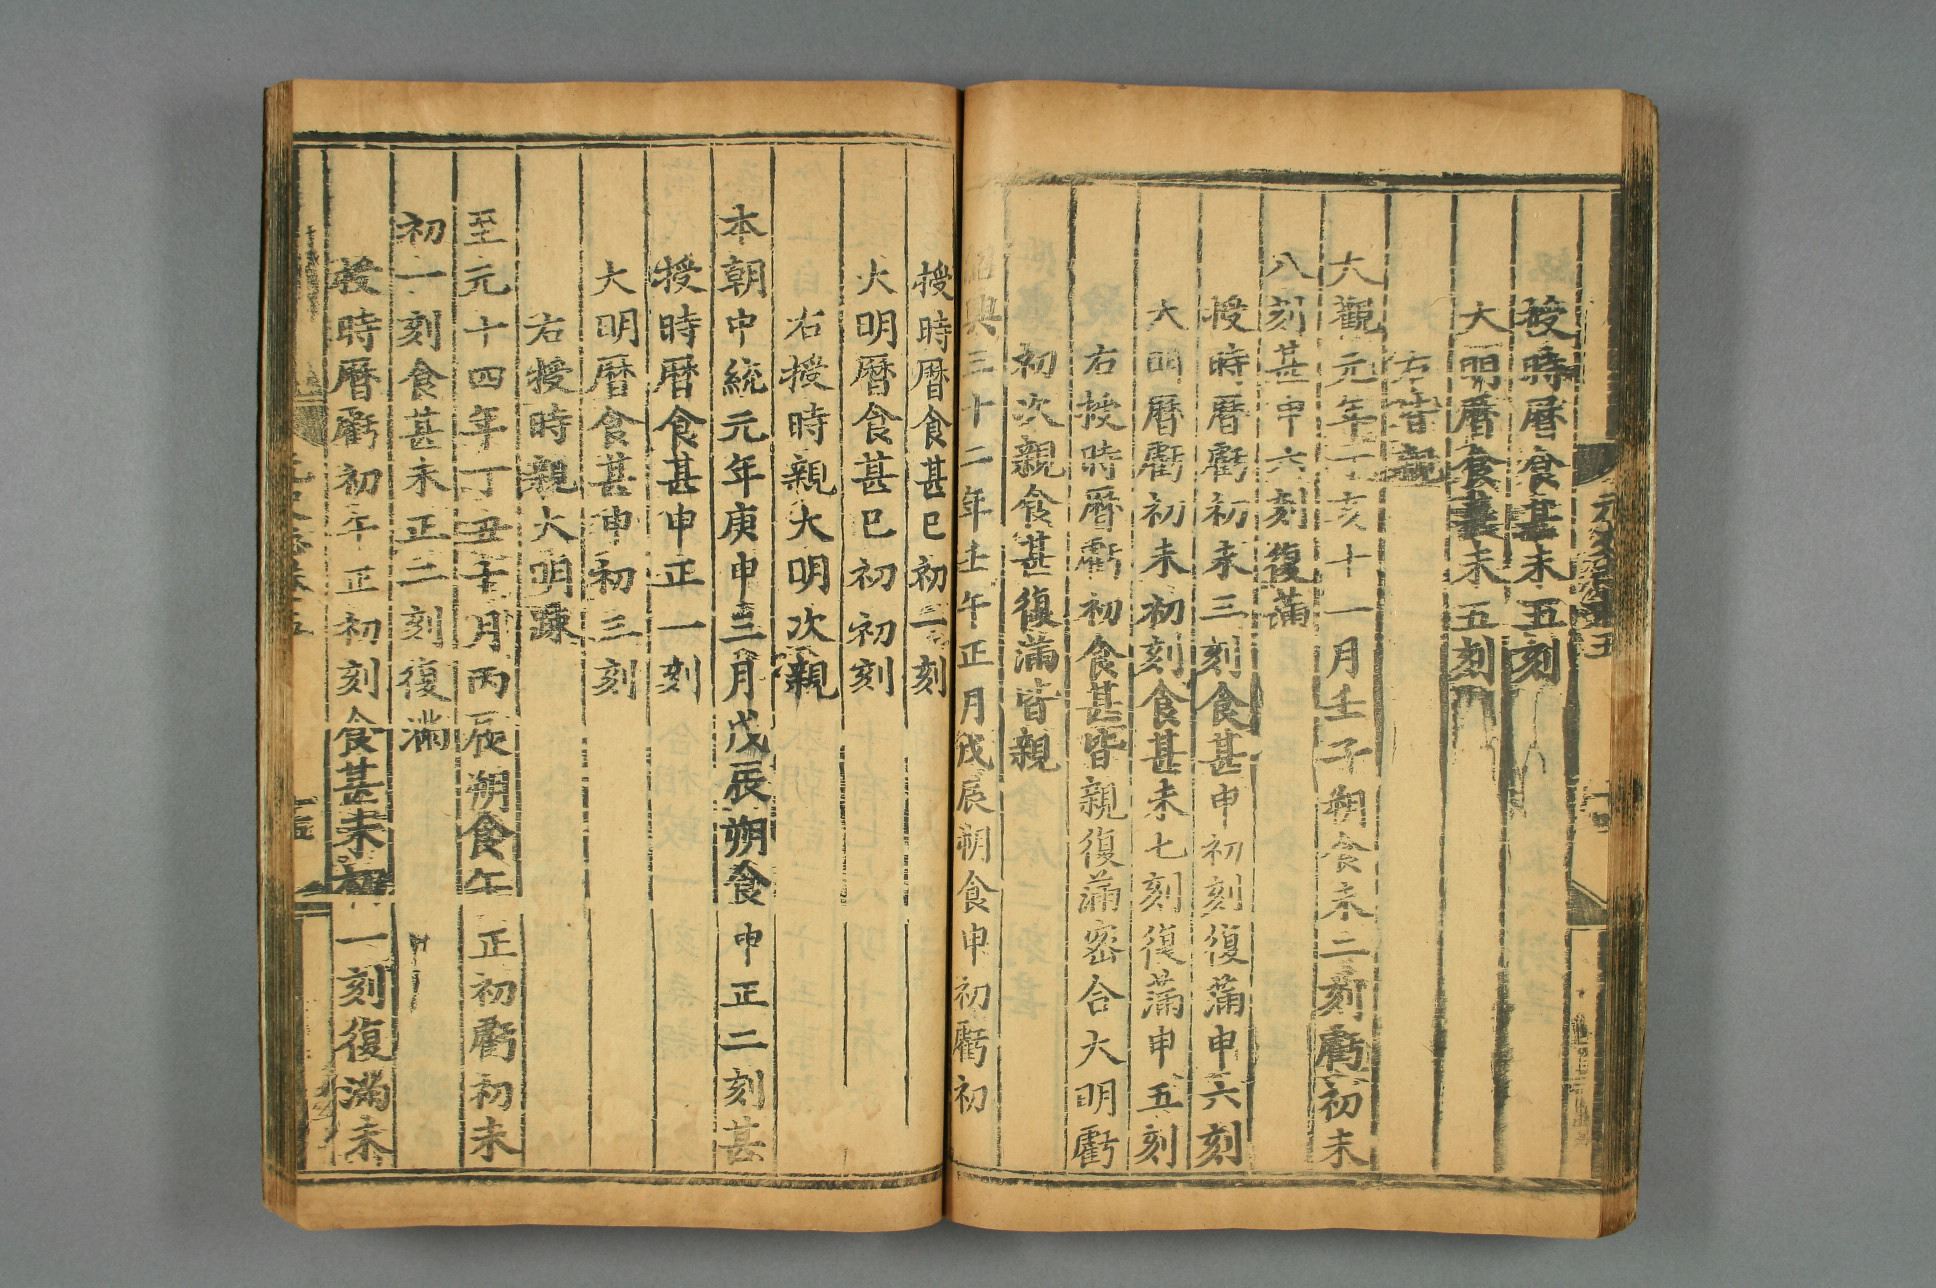 授時曆食甚未五刻
大明曆食甚未五刻
右皆親
大觀元年丁亥十一月壬子朔食未二刻虧初未
八刻甚申六刻復滿
授時曆虧初未三刻食甚申初刻復滿申六刻
大明曆虧初未初刻食甚未七刻復滿申五刻
右授時曆虧初食甚皆親復滿密合大明虧
初次親食甚復滿皆親
紹興三十二年壬午正月戊辰朔食申初虧初
授時曆食甚巳初一刻
大明曆食甚巳初初刻
右授時親大明次親
本朝中統元年庚申三月戊辰朔食申正二刻甚
授時曆食甚申正一刻
大明曆食甚申初三刻
右授時親大明疎
至元十四年丁丑十月丙辰朔食午正初虧初未
初一刻食甚未正二刻復滿
授時曆虧初午正初刻食甚未初一刻復滿未